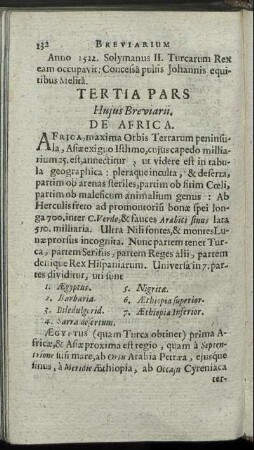 132 BREVIARIUM
Anno 1522. Solymanus II. Turcarum Rex
eam occupavit: Concessâ pulsis Johannis equi-
tibus Melitâ.
TERTIA PARS
Hujus Breviarii.
DE AFRICA.
AFRICA, maxima Orbis Terrarum peninsu-
la, Asiæ exiguo Isthmo, cujus capedo millia-
rium 25. est, annectitur, ut videre est in tabu-
la geographica: pleraque inculta, & deserta,
partim ob arenas steriles, partim ob situm Cœli,
partim ob maleficum animalium genus: Ab
Herculis freto ad promontorium bonæ spei lon-
ga 700, inter C. Verde, & fauces Arabici sinus lata
510. milliaria. Ultra Nili fontes, & montes Lu-
næ prorsus incognita. Nunc partem tenet Tur-
ca, partem Serifus, partem Reges alii, partem
denique Rex Hispaniarum. Universa in 7. par-
tes dividitur, uti sunt
1. Ægyptus. 5. Nigritæ.
2. Barbaria. 6. Æthiopia superior.
3. Biledulgerid. 7. Æthiopia Inferior.
4. Sarra desertum.
ÆGYPTUS (quam Turca obtinet) prima A-
fricæ, & Asiæ proxima est regio, quam à Septen-
trione suū mare, ab Ortu Arabia Petræa, ejusque
sinus, à Meridie Æthiopia, ab Occasu Cyreniaca
ter-